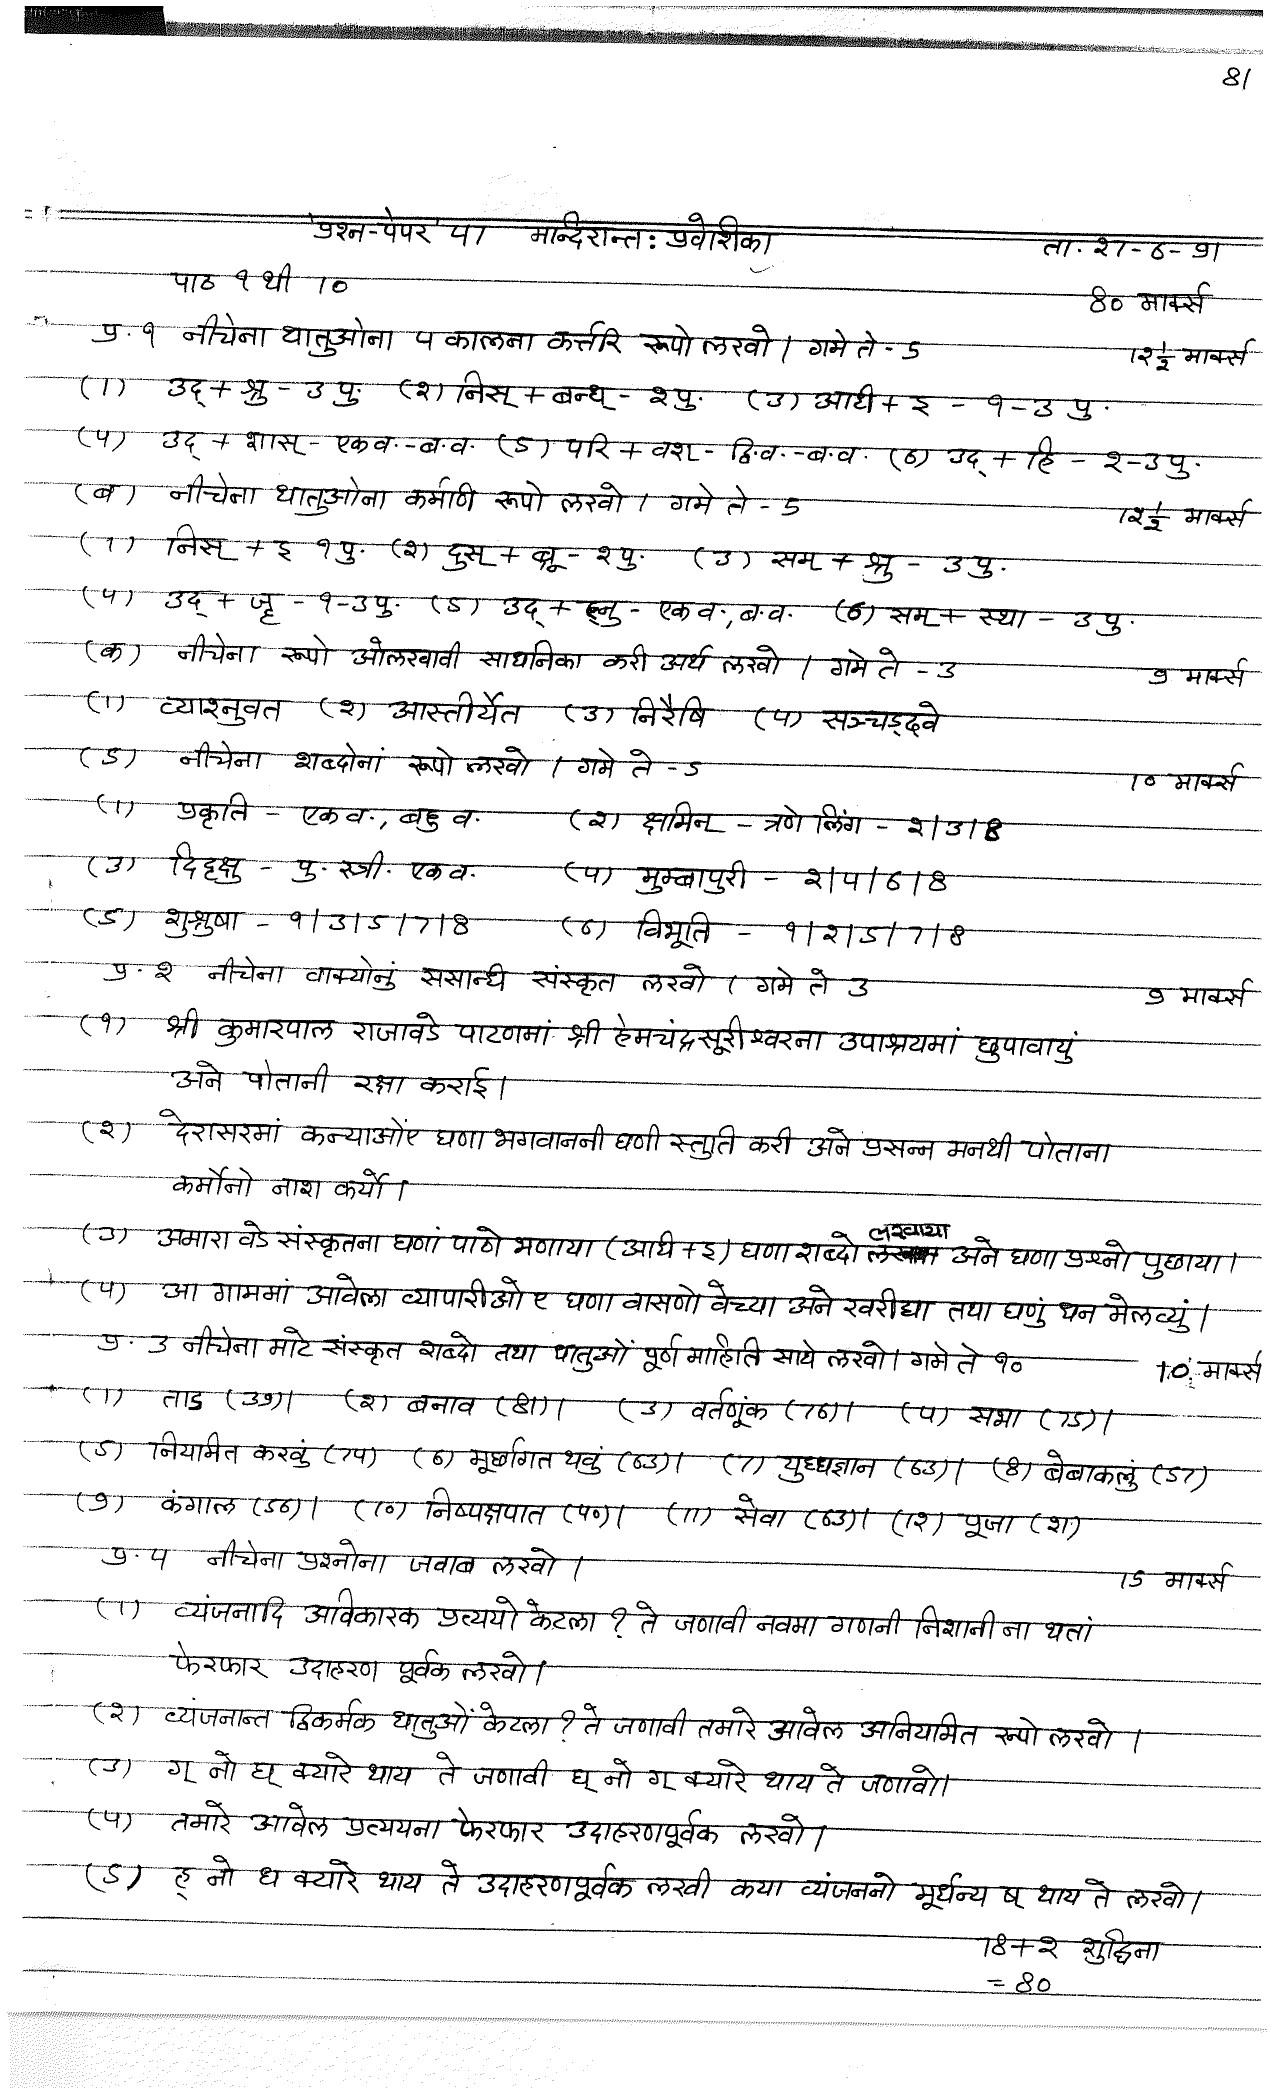 81
प्रश्न-पेपर ४१ मन्दिरान्तः प्रवेशिका ता. २१-६-९१
पाठ १ थी १०
८० मार्क्स
प्र. १ नीचेना धातुओना ४ कालना कर्त्तरि रूपो लखो। गमे ते - ५ १२ १/२ मार्क्स
(१) उद् + श्रु - ३ पु. (२) निस् + बन्ध् - २ पु. (३) अधि + इ - १-३ पु.
(४) उद् + शास् - एक व.-ब.व. (५) परि + वश् - द्वि.व.-ब.व. (६) उद् + हि - २-३ पु.
(ब) नीचेना धातुओना कर्मणि रूपो लखो। गमे ते - ५ १२ १/२ मार्क्स
(१) निस् + इ १ पु. (२) दुस् + ब्रू - २ पु. (३) सम् + श्रु - ३ पु.
(४) उद् + जॄ - १-३ पु. (५) उद् + ह्नु - एक व., ब.व. (६) सम् + स्था - ३ पु.
(क) नीचेना रूपो ओलखावी साधनिका करी अर्थ लखो। गमे ते - ३ ९ मार्क्स
(१) व्याश्नुवत (२) आस्तीर्येत (३) निरैषि (४) सञ्चड्ढ्वे
(ड) नीचेना शब्दोनां रूपो लखो। गमे ते - ५ १० मार्क्स
(१) प्रकृति - एक व., बहु व. (२) क्षमिन् - त्रणे लिंग - २।३।८
(३) दिदृक्षु - पु. स्त्री. एक व. (४) मुम्बापुरी - २।४।६।८
(५) शुश्रुषा - १।३।५।७।८ (६) विभूति - १।२।५।७।८
प्र. २ नीचेना वाक्योनुं ससन्धि संस्कृत लखो। गमे ते ३ ९ मार्क्स
(१) श्री कुमारपाल राजावडे पाटणमां श्री हेमचंद्रसूरीश्वरना उपाश्रयमां छुपावायुं
अने पोतानी रक्षा कराई।
(२) देरासरमां कन्याओंए घणा भगवाननी घणी स्तुति करी अने प्रसन्न मनथी पोताना
कर्मोनो नाश कर्यो।
(३) अमारा वडे संस्कृतना घणां पाठो भणाया (अधि + इ) घणा शब्दो लखाया अने घणा प्रश्नो पुछाया।
(४) आ गाममां आवेला व्यापारीओए घणा वासणो वेच्या अने खरीद्या तथा घणुं धन मेलव्युं।
प्र. ३ नीचेना माटे संस्कृत शब्दो तथा धातुओं पूर्ण माहिति साथे लखो। गमे ते १० १० मार्क्स
(१) ताड (३९)। (२) बनाव (८१)। (३) वर्तणूंक (७६)। (४) सभा (७५)।
(५) नियमित करवुं (७४) (६) मूर्छागत थवुं (६३)। (७) युध्धज्ञान (६३)। (८) बेबाकलुं (५७)
(९) कंगाल (५६)। (१०) निष्पक्षपात (४०)। (११) सेवा (६३)। (१२) पूजा (२१)
प्र. ४ नीचेना प्रश्नोना जवाब लखो। १५ मार्क्स
(१) व्यंजनादि अविकारक प्रत्ययो केटला? ते जणावी नवमा गणनी निशानी ना थतां
फेरफार उदाहरण पूर्वक लखो।
(२) व्यंजनान्त द्विकर्मक धातुओं केटला? ते जणावी तमारे आवेल अनियमित रूपो लखो।
(३) ग् नो घ् क्यारे थाय ते जणावी घ् नो ग् क्यारे थाय ते जणावो।
(४) तमारे आवेल प्रत्ययना फेरफार उदाहरणपूर्वक लखो।
(५) ह् नो ध क्यारे थाय ते उदाहरणपूर्वक लखी कया व्यंजननो मूर्धन्य ष् थाय ते लखो।
७८+२ शुद्धिना
= ८०